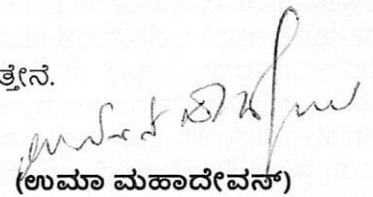 ತ್ತೇನೆ.
(ಉಮಾ ಮಹಾದೇವನ್)